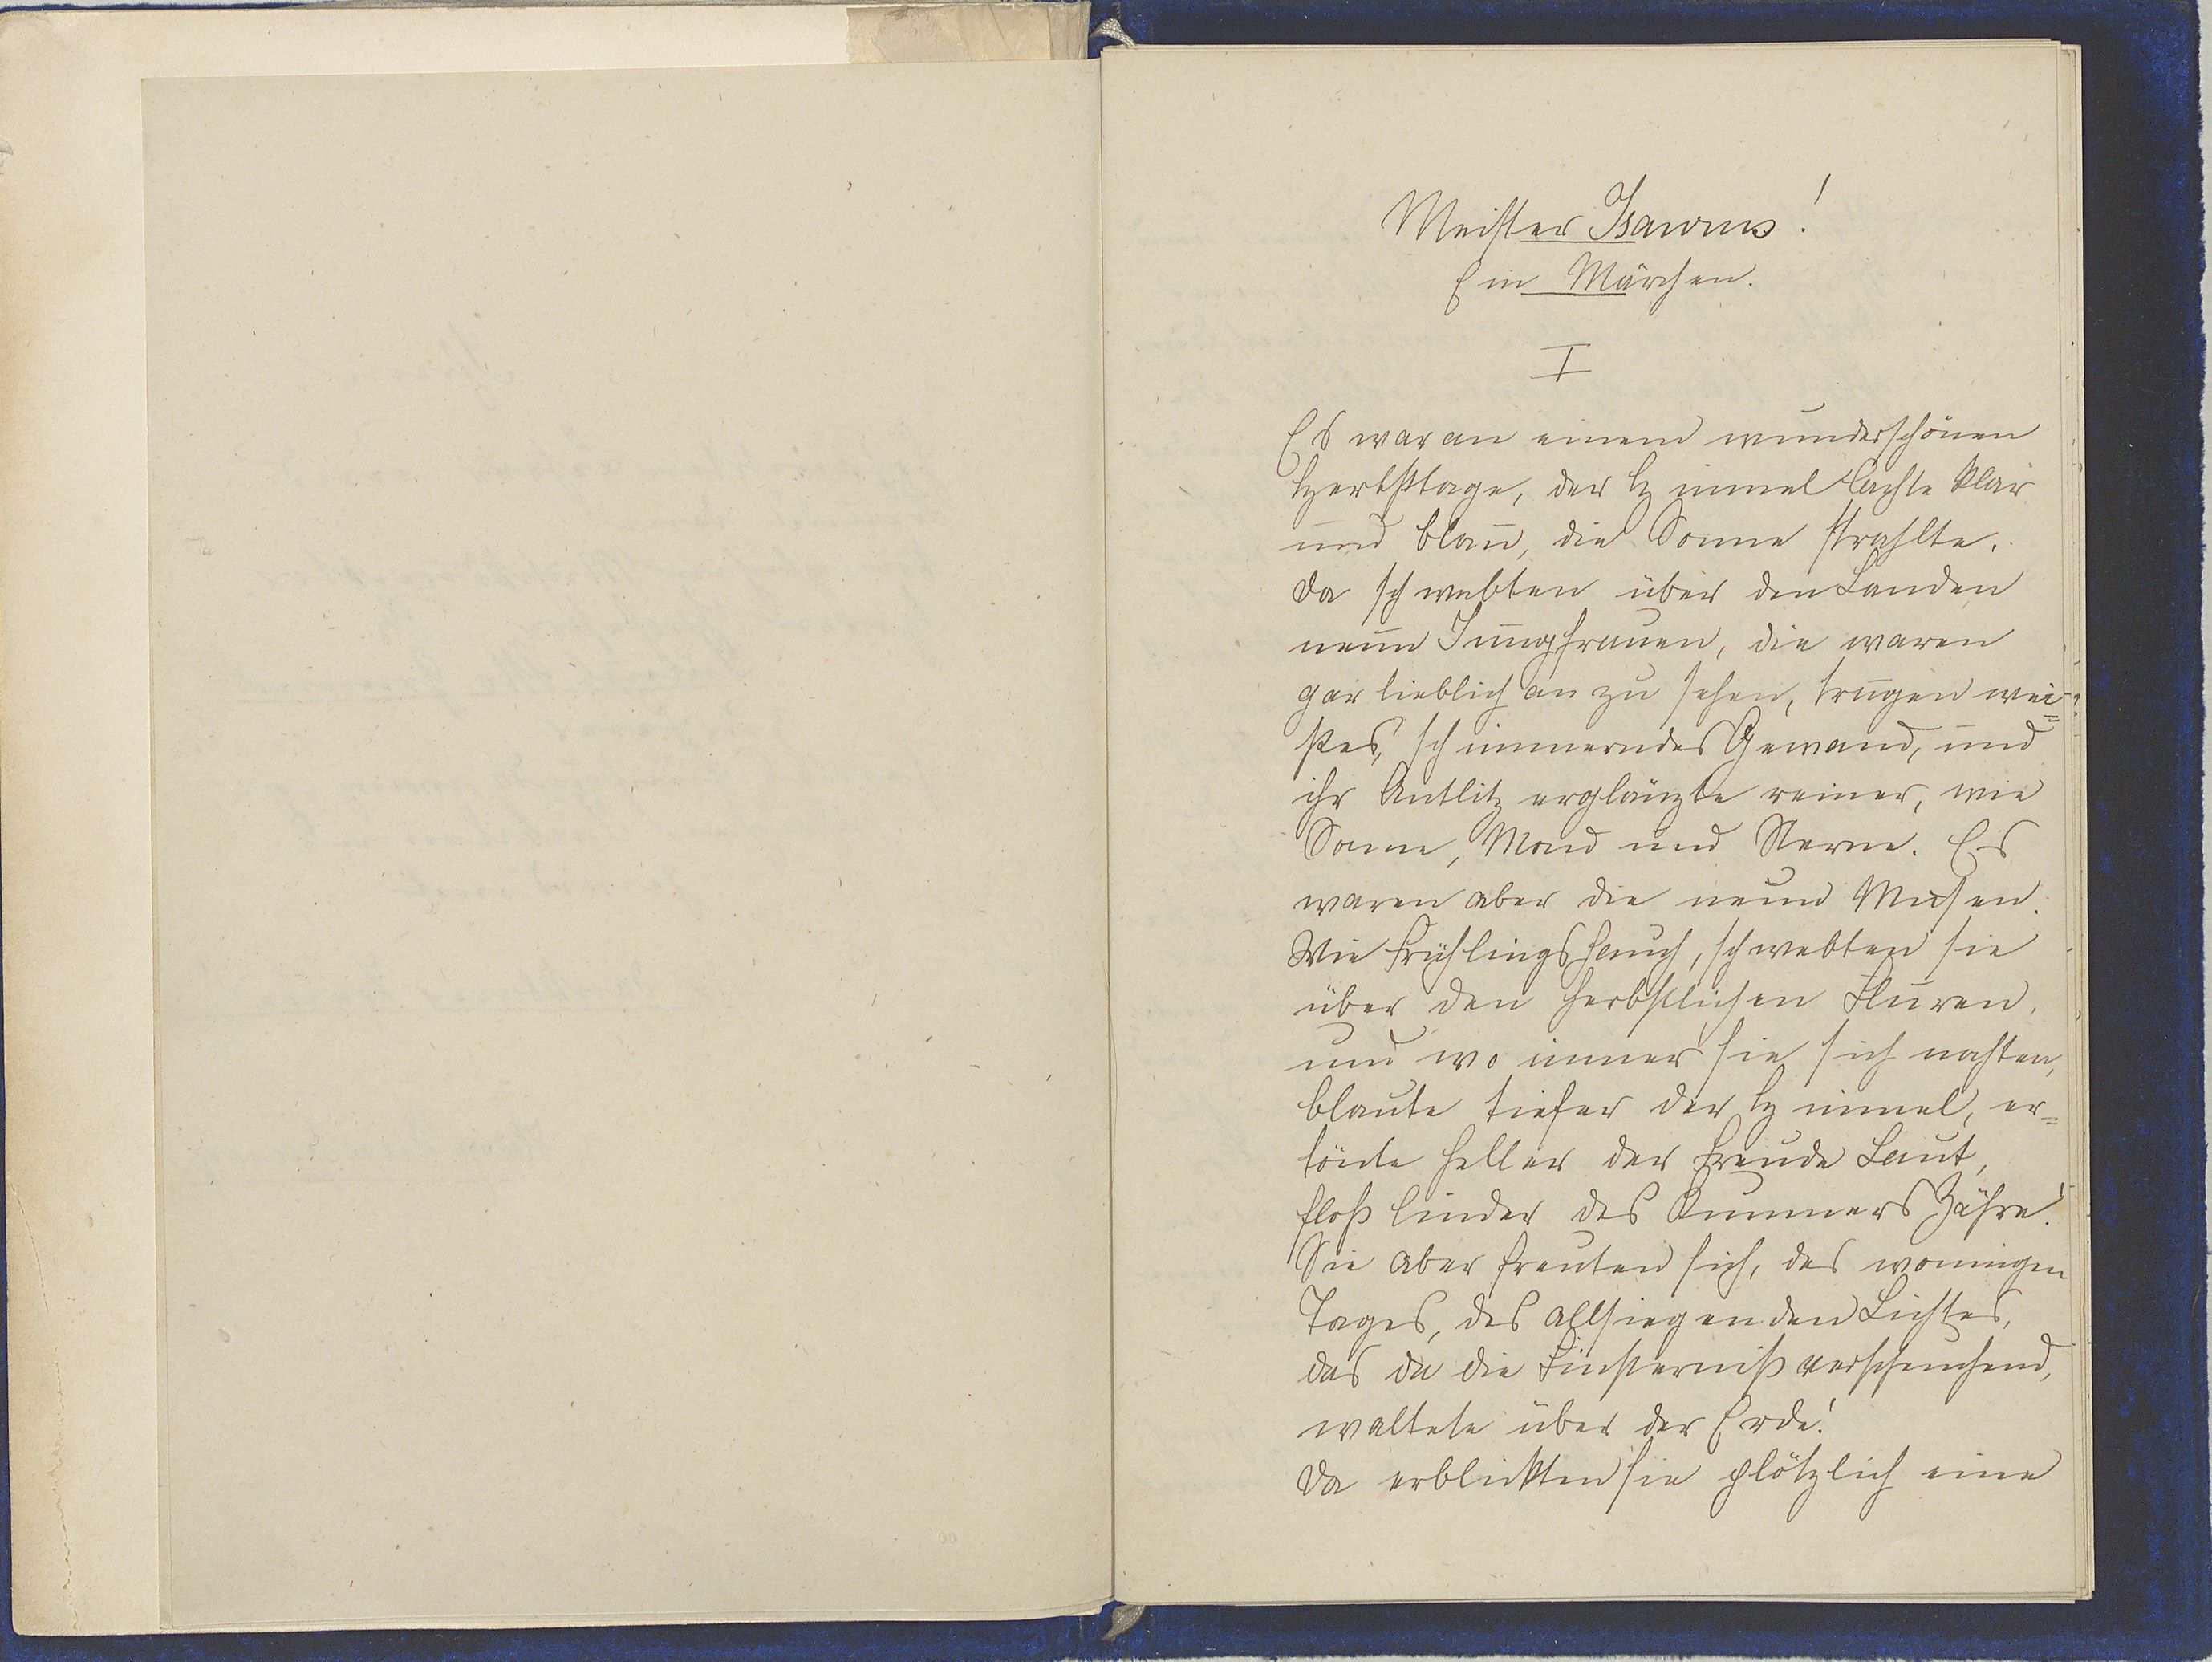 Meister Isarius!
Ein Märchen.
I
Es war an einem wunderschönen
Herbsttage, der Himmel lachte klar
und blau, die Sonne strahlte.
Da schwebten über den Landen
neun Jungfrauen, die waren
gar lieblich an zu sehen, trugen wei=
ßes, schimmerndes Gewand, und
ihr Antlitz erglänzte reiner, wie
Sonne, Mond und Sterne. Es
waren aber die neun Musen.
Wie Frühlingshauch, schwebten sie
über den herbstlichen Fluren,
und wo immer sie sich nahten,
blaute tiefer der Himmel, er=
tönte heller der Freude Laut,
floß linder des Kummers Zähre!
Sie aber freuten sich, des wonnigen
Tages, des allsiegenden Lichtes,
das da die Finsterniß verscheuchend,
waltete über der Erde!
Da erblickten sie plötzlich eine